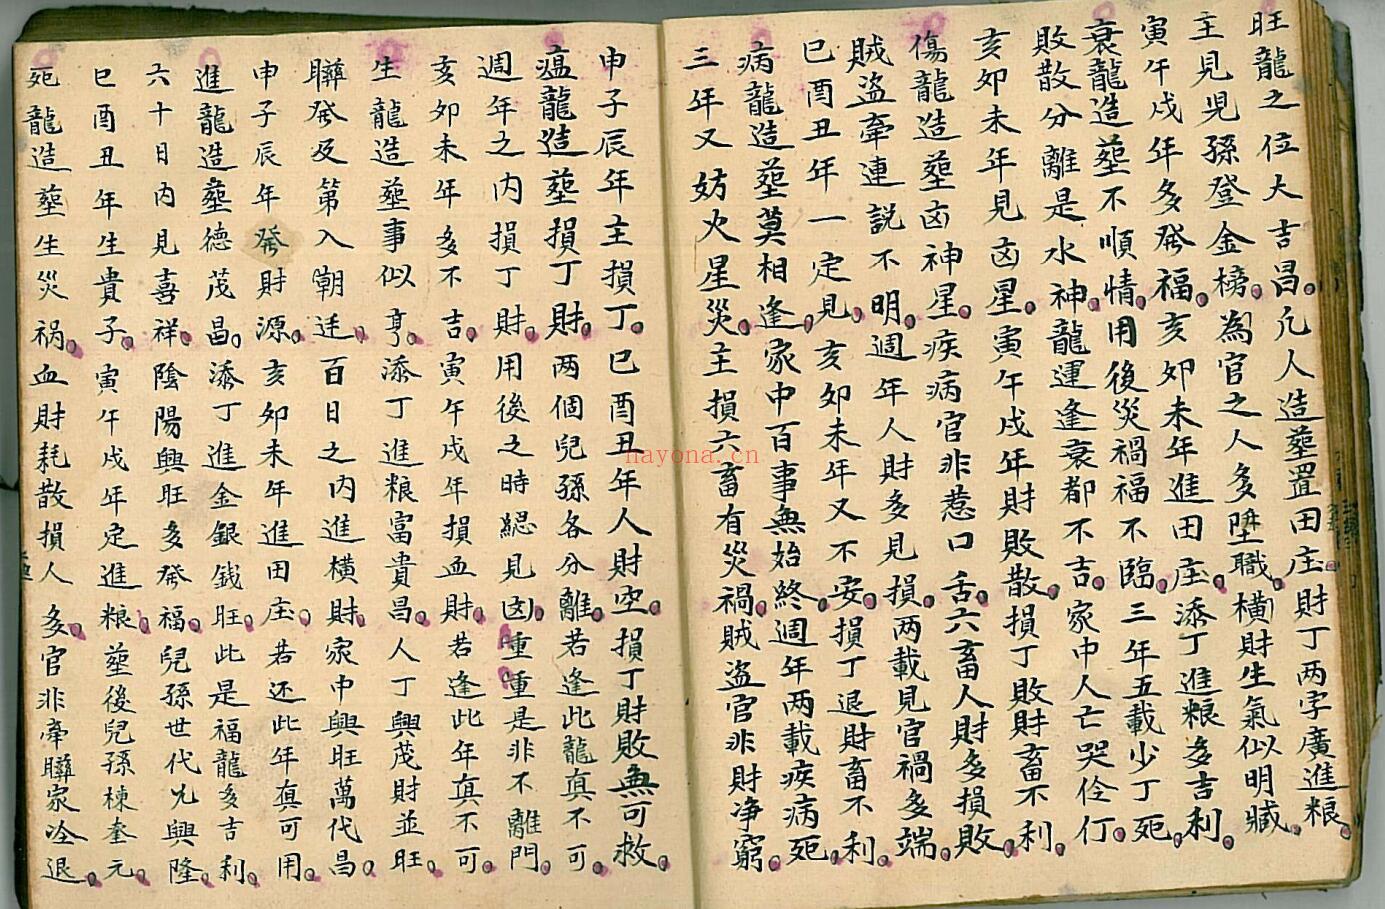 旺龍之位大吉昌。凡人造塟置田庄。財丁两字廣進粮。
主見児孫登金榜。為官之人多陞職。橫財生氣似明藏。
寅午戌年多發福。亥卯未年進田庄。添丁進粮多吉利。
衰龍造塟不順情。用後災禍福不臨。三年五載少丁死。
敗散分離是水神。龍運逢衰都不吉。家中人亡哭伶仃。
亥卯未年見凶星。寅午戌年財敗散。損丁敗財畜不利。
傷龍造塟凶神星。疾病官非惹口舌。六畜人財多損敗。
賊盗牽連説不明。週年人財多見損。两載見官禍多端。
巳酉丑年一定見。亥卯未年又不安。損丁退財畜不利。
病龍造塟莫相逢。家中百事無始終。週年两載疾病死。
三年又妨火星災。主損六畜有災禍。賊盗官非財净窮。
申子辰年主損丁。巳酉丑年人財空。損丁財敗無可救。
瘟龍造塟損丁財。两個兒孫各分離。若逢此龍真不可。
週年之内損丁財。用後之時緦見凶。重重是非不離門。
亥卯未年多不吉。寅午戌年損血財。若逢此年真不可。
生龍造塟事似亨。添丁進粮富貴昌。人丁興茂財並旺。
聯發及第入朝廷。百日之内進橫財。家中興旺萬代昌。
申子辰年發財源。亥卯未年進田庄。若还此年真可用。
進龍造塟德茂昌。添丁進金銀錢旺。此是福龍多吉利。
六十日内見喜祥。陰陽興旺多發福。兒孫世代尤興隆。
巳酉丑年生貴子。寅午戌年定進粮。塟後兒孫棟奎元。
死龍造塟生災禍。血財耗散損人多。官非牽聯家冷退。
nayona.cn